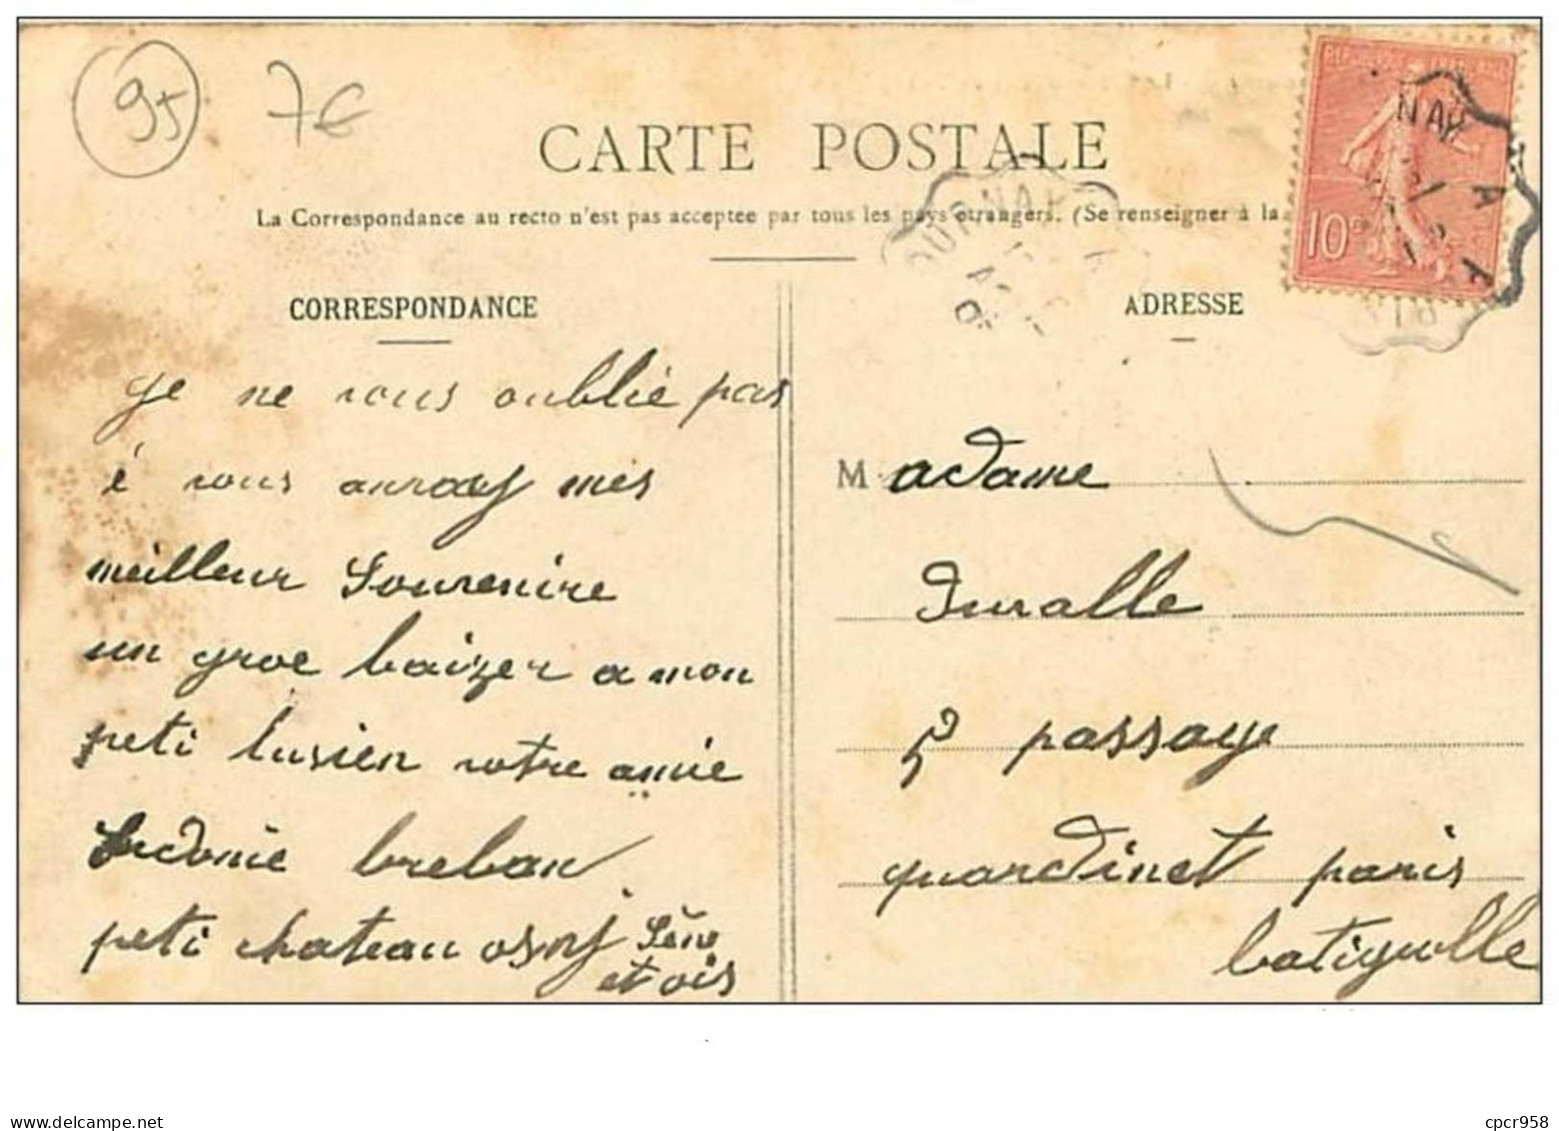 95
7€
CARTE POSTALE
La Correspondance au recto n'est pas acceptee par tous les pays étrangers. (Se renseigner à la
OURNAY A
NAY A
10c
CORRESPONDANCE
ADRESSE
ge ne vous oublie pas
é vous anvoy mes
meilleur Souvenire
un groe baizer a mon
peti lusien votre amie
Sidonie breban
peti chateau osny Sène
et ois
Madame
Duvalle
5 passage
guardinet paris
batignolle
delcampe.net
cpcr958